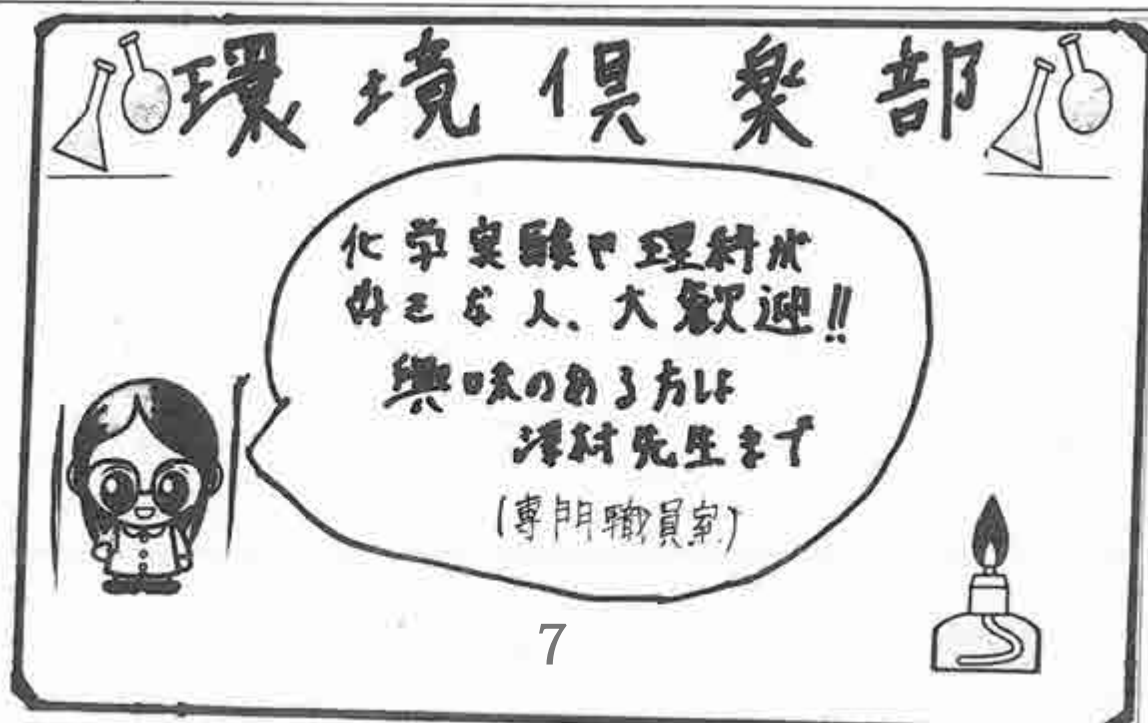 環境倶楽部
化学実験や理科が
好きな人、大歓迎!!
興味のある方は
澤村先生まで
(専門職員室)
7